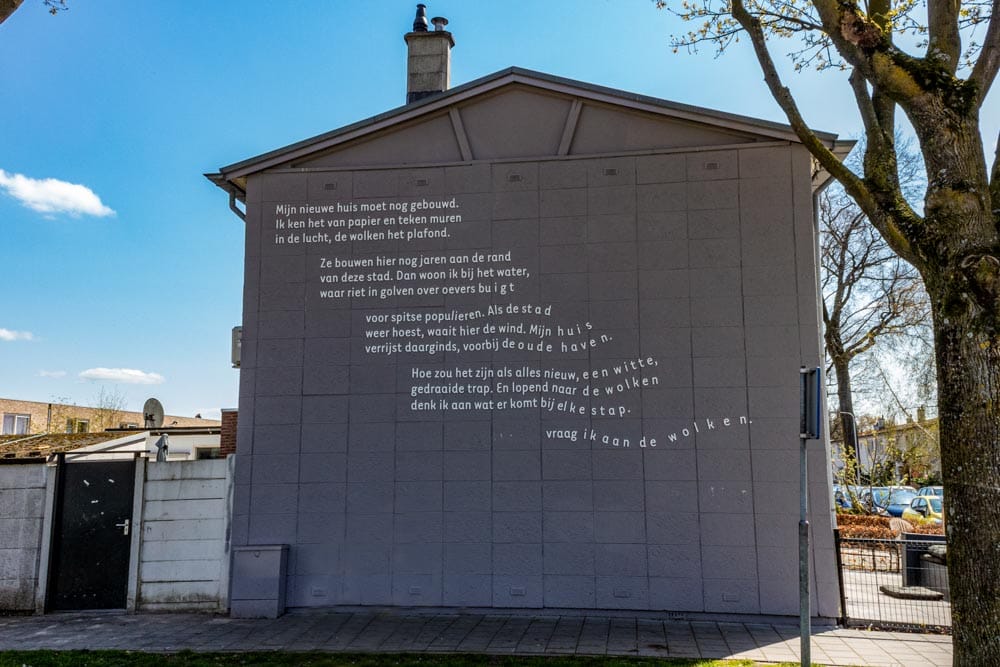 Mijn nieuwe huis moet nog gebouwd.
Ik ken het van papier en teken muren
in de lucht, de wolken het plafond.
Ze bouwen hier nog jaren aan de rand
van deze stad. Dan woon ik bij het water,
waar riet in golven over oevers buigt
voor spitse populieren. Als de stad
weer hoest, waait hier de wind. Mijn huis
verrijst daarginds, voorbij de oude haven.
Hoe zou het zijn als alles nieuw, een witte,
gedraaide trap. En lopend naar de wolken
denk ik aan wat er komt bij elke stap.
vraag ik aan de wolken.